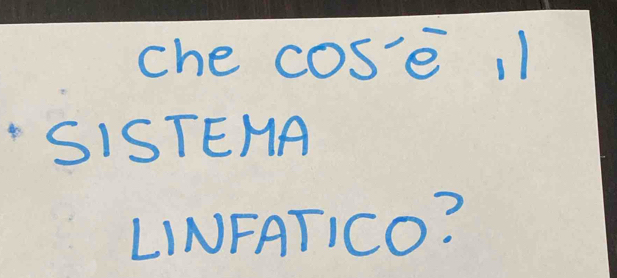 che cos'è il
SISTEMA
LINFATICO?